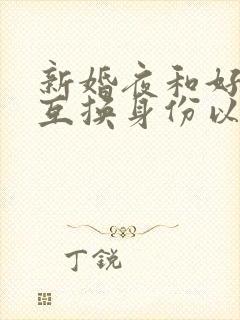 新婚夜和好
互换身份以
丁锐